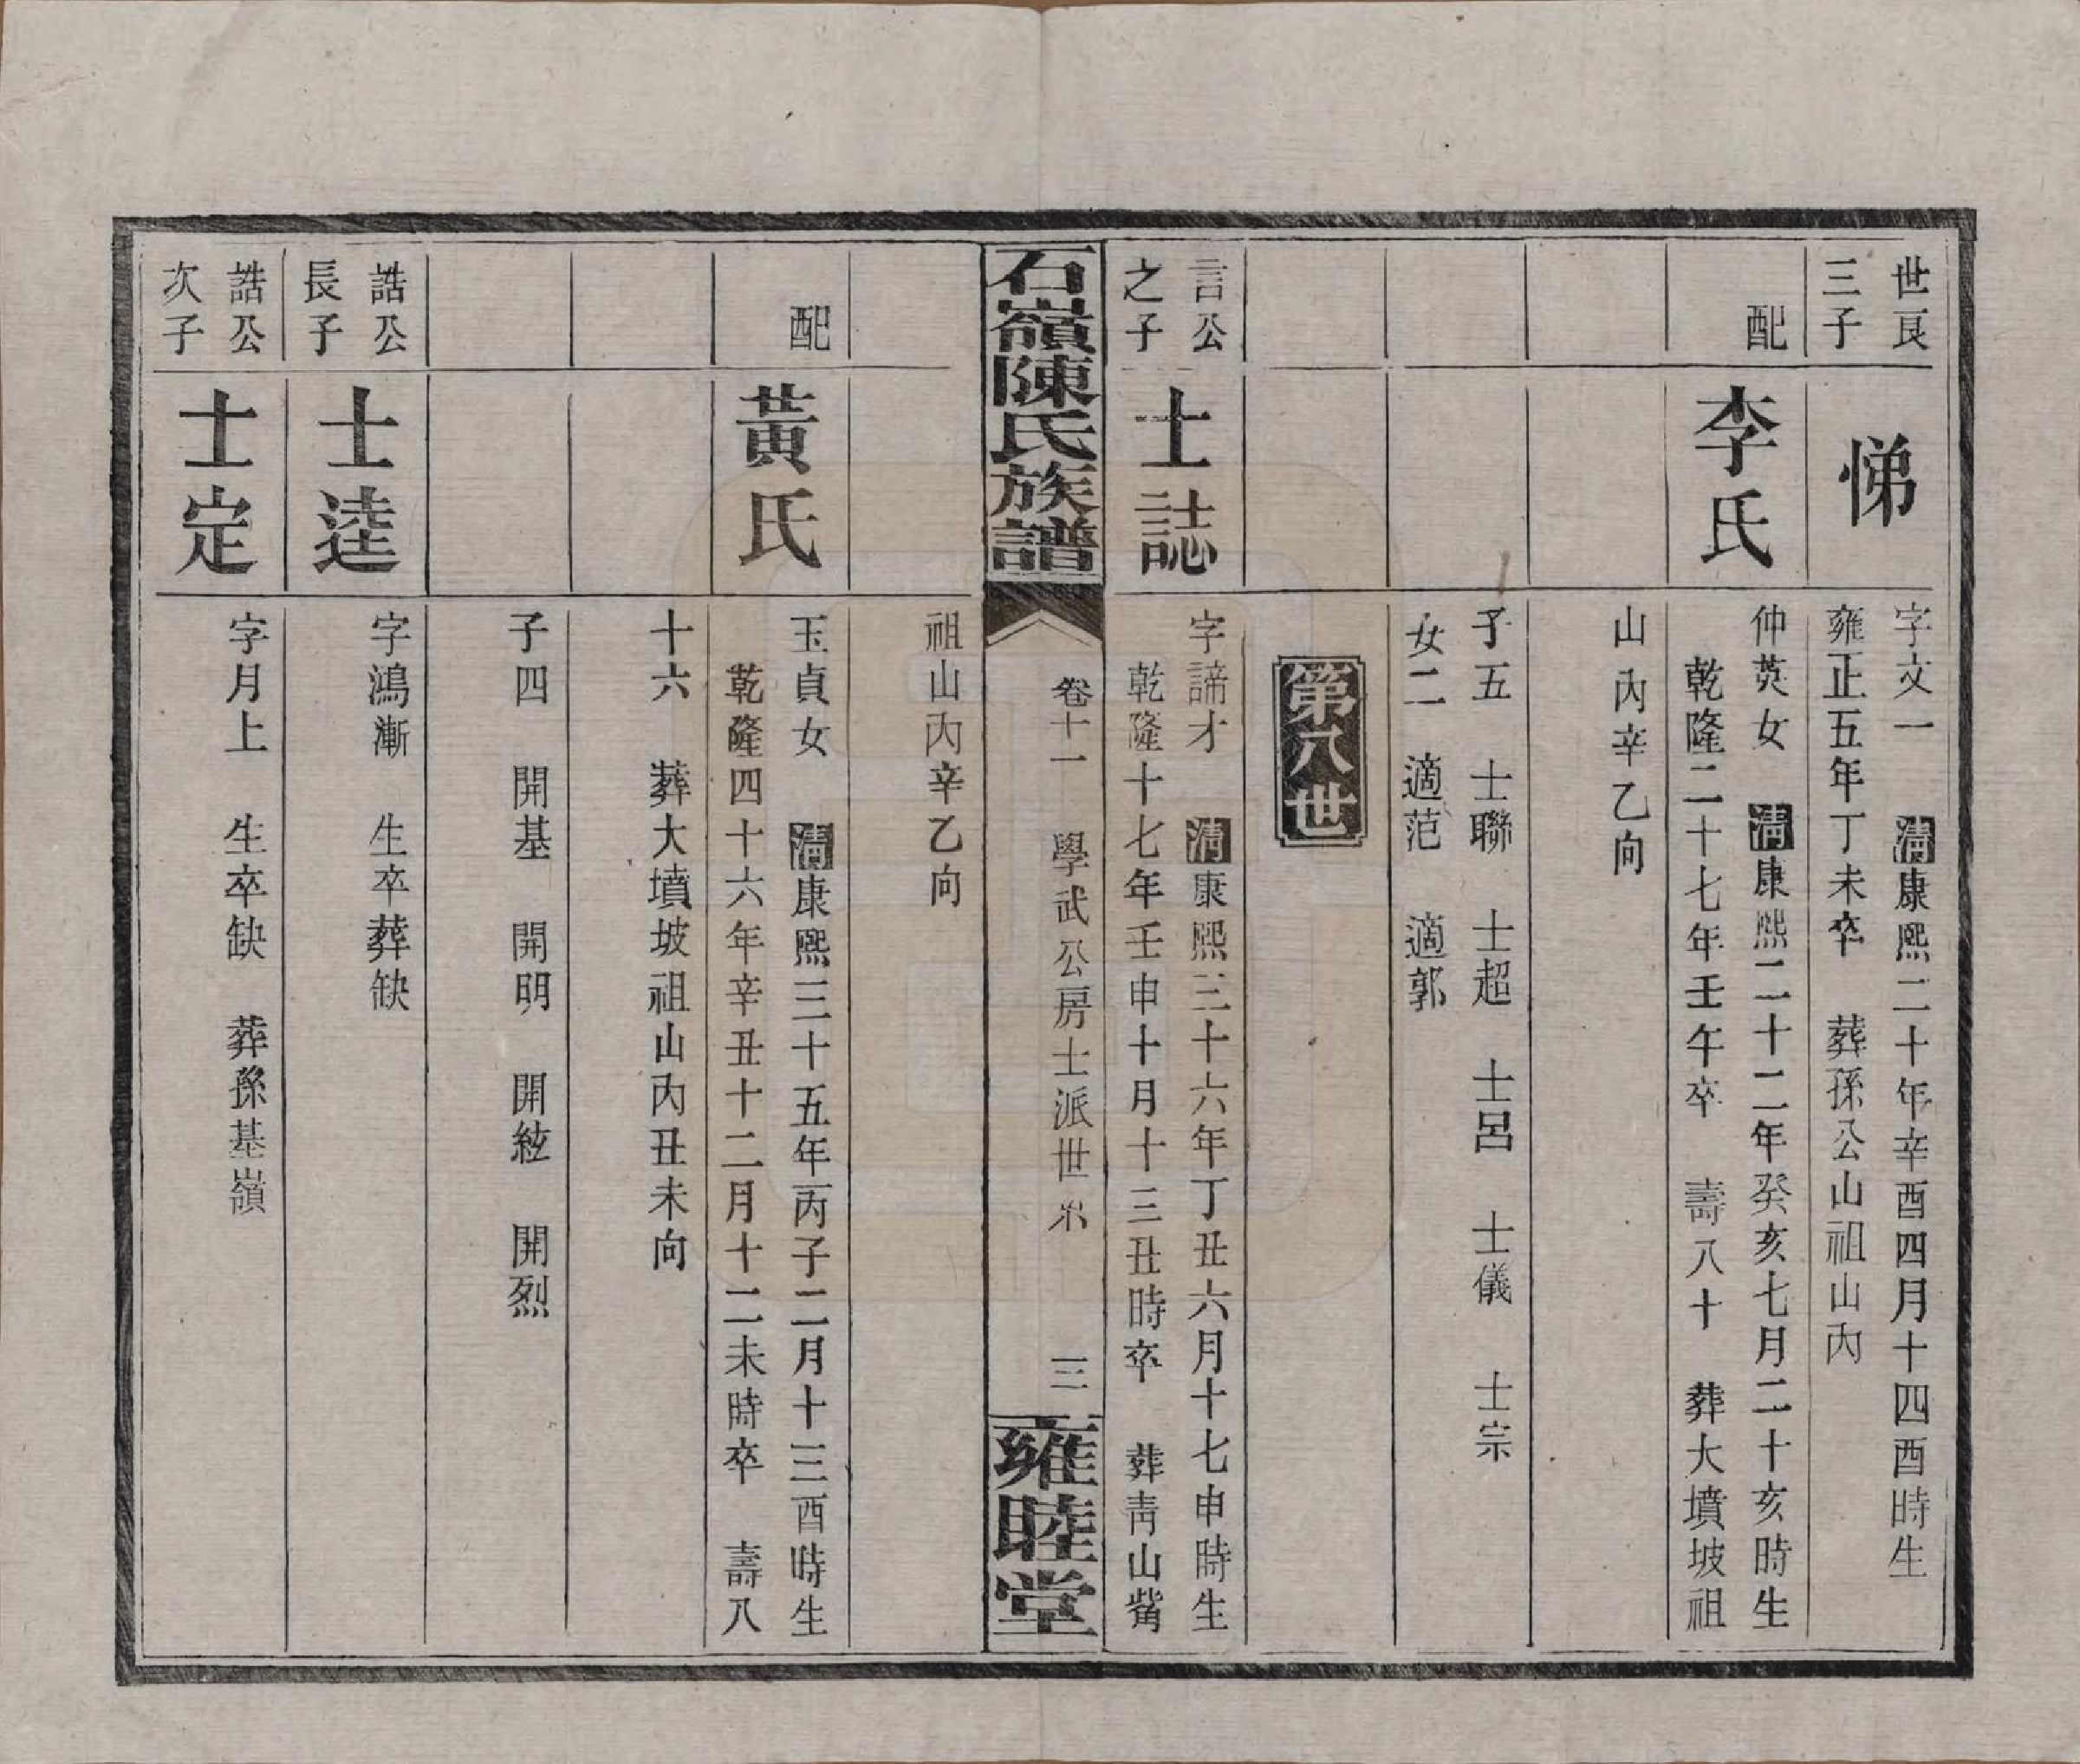 世良
三子
悌
字文一　清康熙二十年辛酉四月十四酉時生
雍正五年丁未卒　葬孫公山祖山內
配
李氏
仲英女　清康熙二十二年癸亥七月二十亥時生
乾隆二十七年壬午卒　壽八十　葬大墳坡祖
山內辛乙向
子五　士聯　士超　士呂　士儀　士宗
女二　適范　適郭
第八世
言公
之子
士誌
字諦才　清康熙三十六年丁丑六月十七申時生
乾隆十七年壬申十月十三丑時卒　葬青山觜
石嶺陳氏族譜
卷十一　學武公房士派世系　三
雍睦堂
祖山內辛乙向
配
黃氏
玉貞女　清康熙三十五年丙子二月十三酉時生
乾隆四十六年辛丑十二月十二未時卒　壽八
十六　葬大墳坡祖山內丑未向
子四　開基　開明　開絃　開烈
誥公
長子
士逵
字鴻漸　生卒葬缺
誥公
次子
士定
字月上　生卒缺　葬孫基嶺